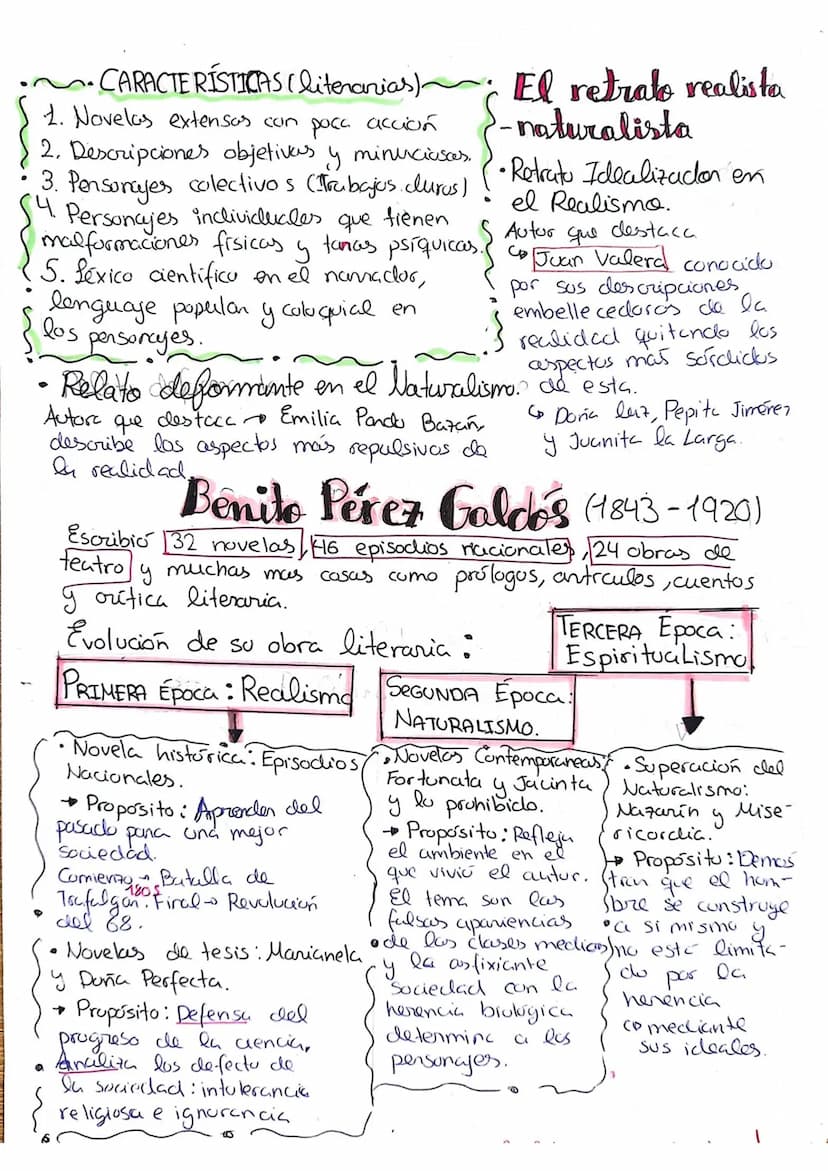 CARACTERÍSTICAS (literarias)
1. Novelas extensas con poca acción
2. Descripciones objetivas y minuciosas.
3. Personajes colectivos (Trabajos duros)
4. Personajes individuales que tienen
malformaciones físicas y taras psíquicas.
5. Léxico científico en el narrador,
lenguaje popular y coloquial en
los personajes.
El retrato realista
-naturalista
• Retrato Idealizador en
el Realismo.
Autor que destaca
↳ Juan Valera conocido
por sus descripciones
embellecedoras de la
realidad quitando los
aspectos más sórdidos
de esta.
↳ Doña luz, Pepita Jiménez
y Juanita la Larga.
• Relato deformante en el Naturalismo.
Autora que destaca → Emilia Pardo Bazán,
describe los aspectos más repulsivos de
la realidad.
Benito Pérez Galdós (1843-1920)
Escribió 32 novelas, 46 episodios nacionales, 24 obras de
teatro y muchas mas cosas como prólogos, artículos, cuentos
y crítica literaria.
Evolución de su obra literaria:
PRIMERA Época: Realismo
• Novela histórica: Episodios
Nacionales.
→ Propósito: Aprender del
pasado para una mejor
sociedad.
Comienzo → Batalla de
Trafalgar. 1805 Final → Revolución
del 68.
• Novelas de tesis: Marianela
y Doña Perfecta.
→ Propósito: Defensa del
progreso de la ciencia,
analiza los defecto de
la sociedad: intolerancia
religiosa e ignorancia
SEGUNDA Época:
NATURALISMO.
• Novelas Contemporaneas:
Fortunata y Jacinta
y lo prohibido.
→ Propósito: Refleja
el ambiente en el
que vivió el autor.
El tema son las
falsas apariencias
de las clases medias
y la asfixiante
sociedad con la
herencia biológica
determina a los
personajes.
TERCERA Época:
Espiritualismo
• Superación del
Naturalismo:
Nazarín y Mise-
ricordia.
→ Propósito: Demos
tran que el hom-
bre se construye
a si mismo y
no está limita-
do por la
herencia
↳ mediante
sus ideales.